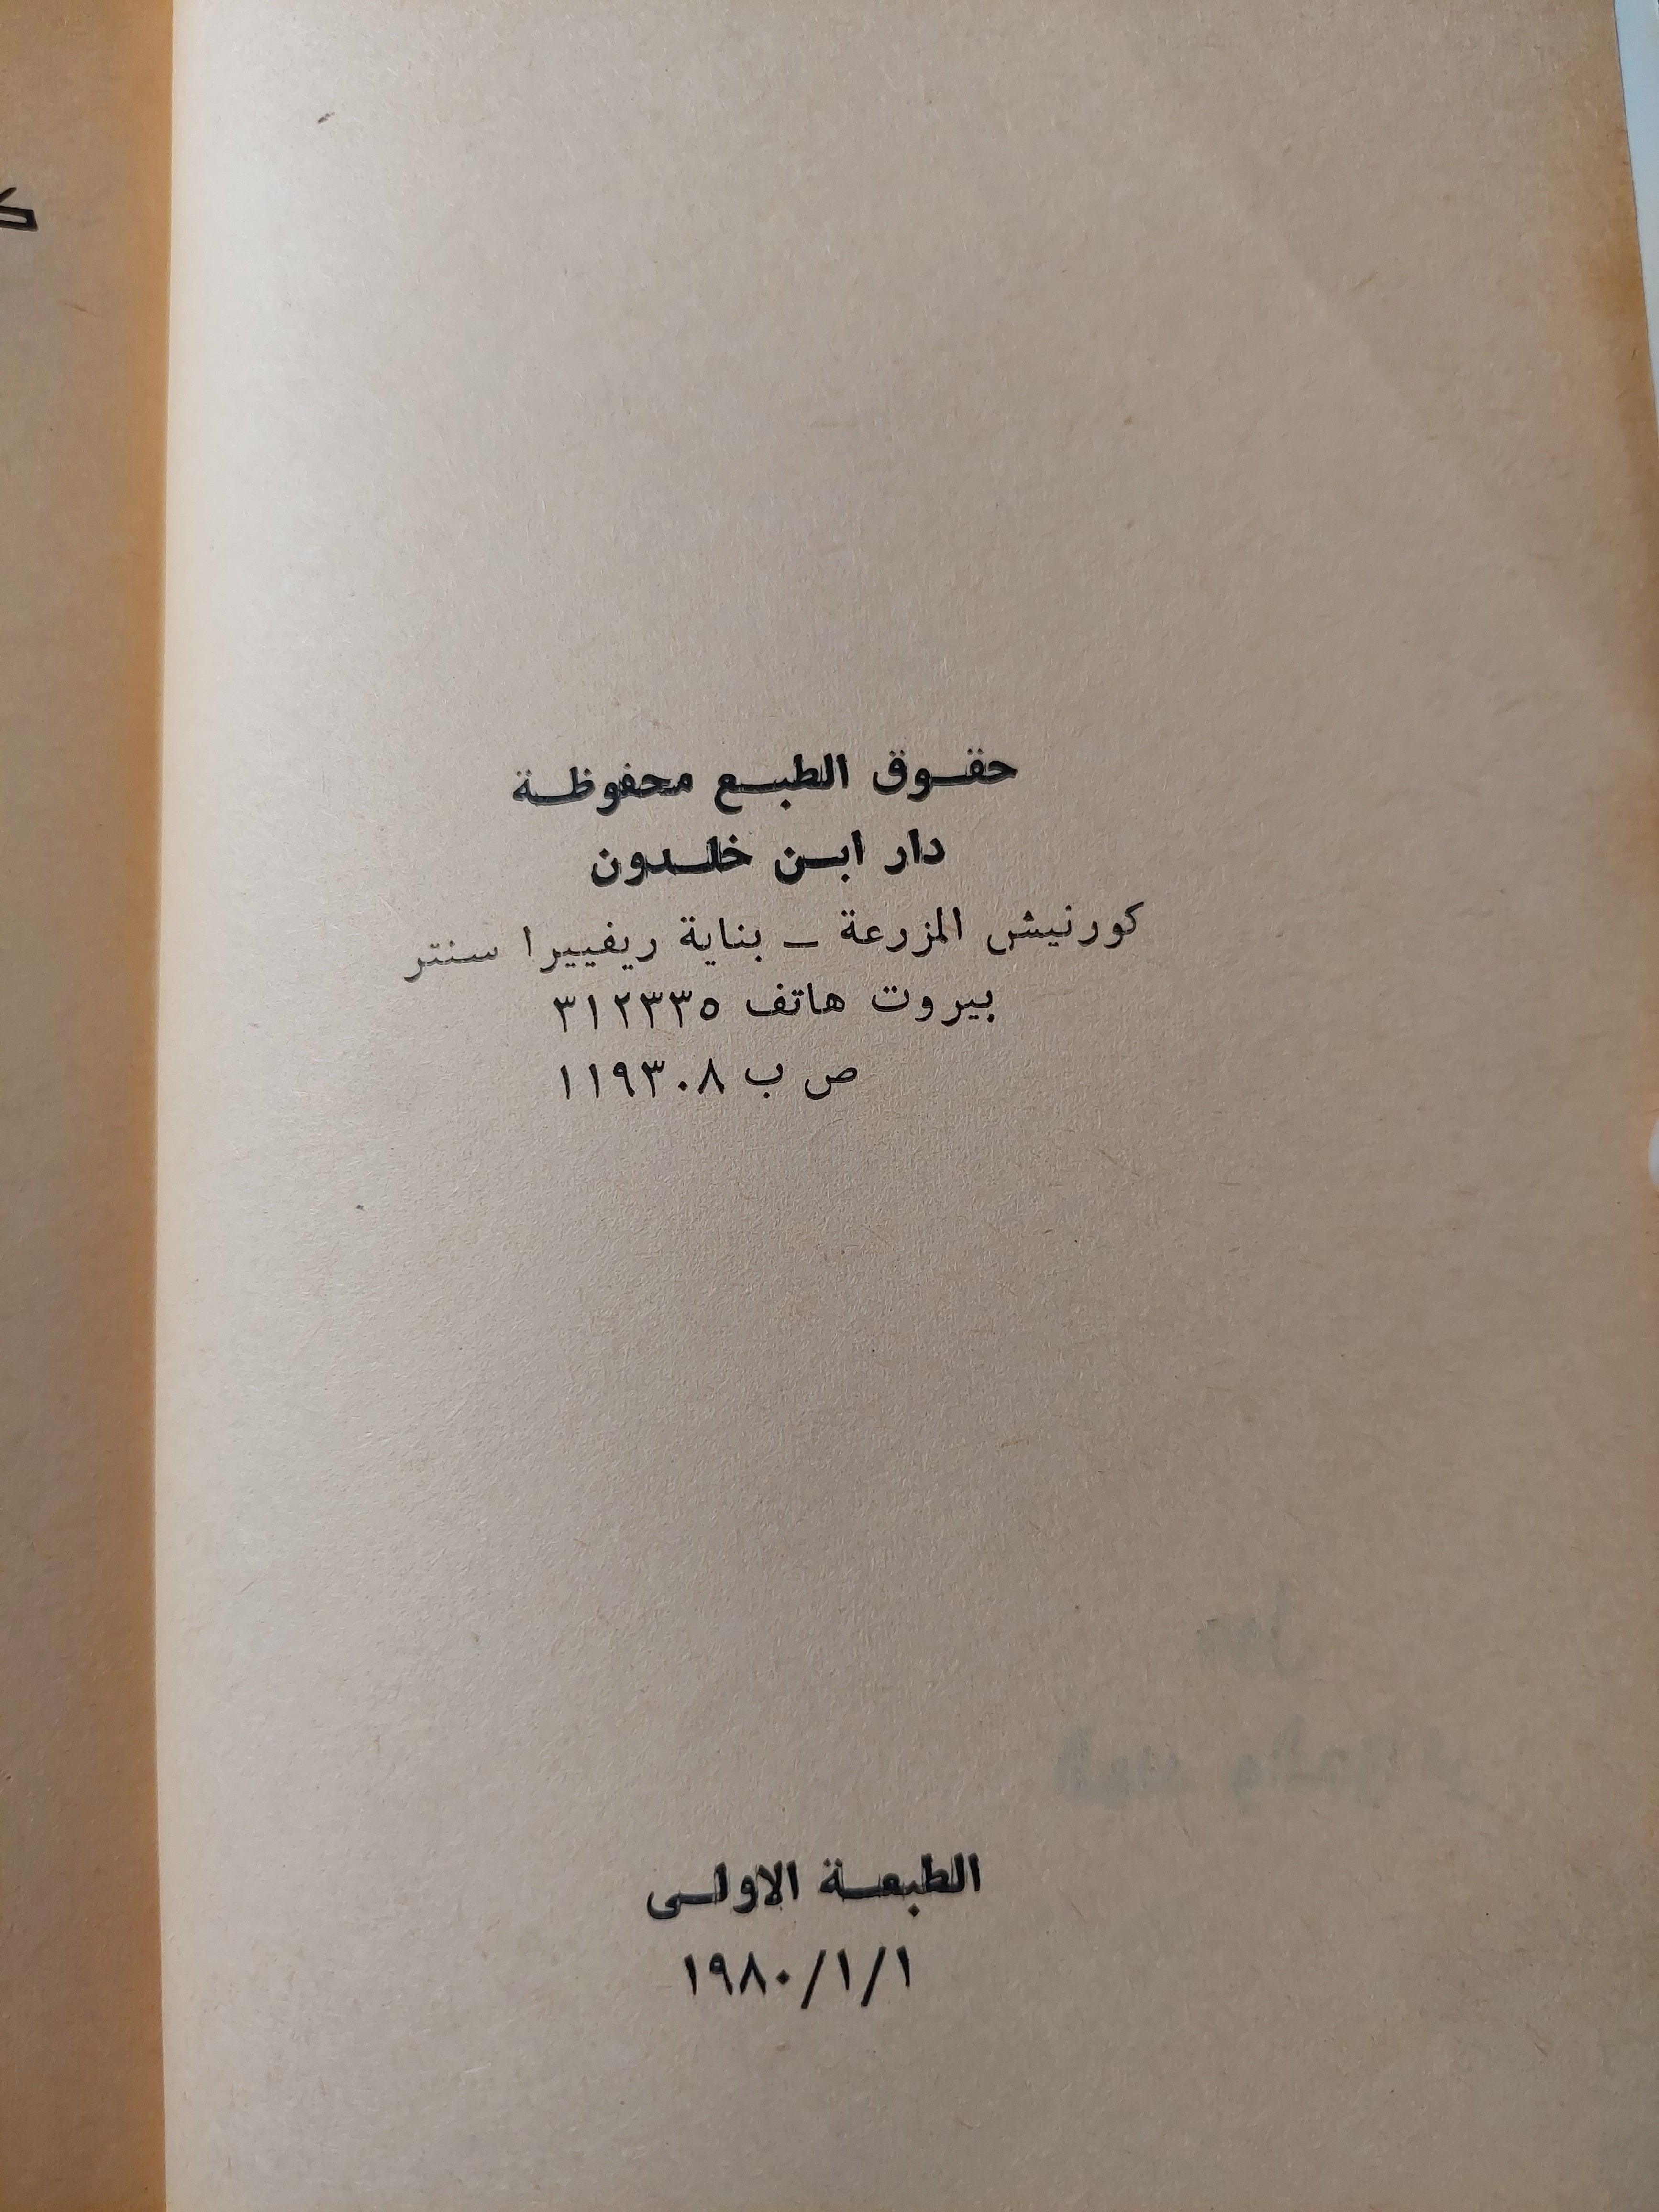 حقوق الطبع محفوظة
دار ابن خلدون
كورنيش المزرعة – بناية ريفييرا سنتر
بيروت هاتف ٣١٢٣٣٥
ص ب ١١٩٣٠٨
الطبعة الاولى
١٩٨٠/١/١